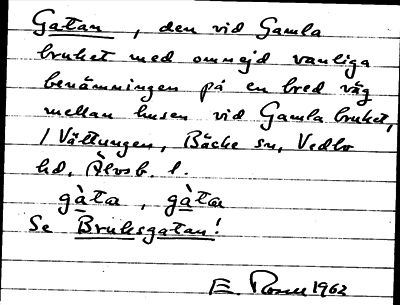 Gatan, den vid Gamla
bruket med omnejd vanliga
benämningen på en bred väg
mellan husen vid Gamla bruket,
/ Vättungen, Bäcke sn, Vedbo
hd, Älvsb. l.
gàta, gàta
Se Bruksgatan!
E. Rosen 1962